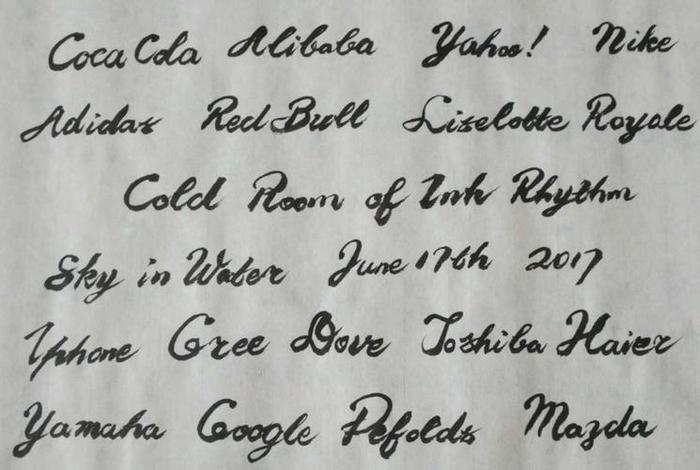 Coca Cola Alibaba Yahoo! Nike
Adidas Red Bull Liselotte Royale
Cold Room of Ink Rhythm
Sky in Water June 17th 2017
Iphone Gree Dove Toshiba Haier
Yamaha Google Pefolds Mazda